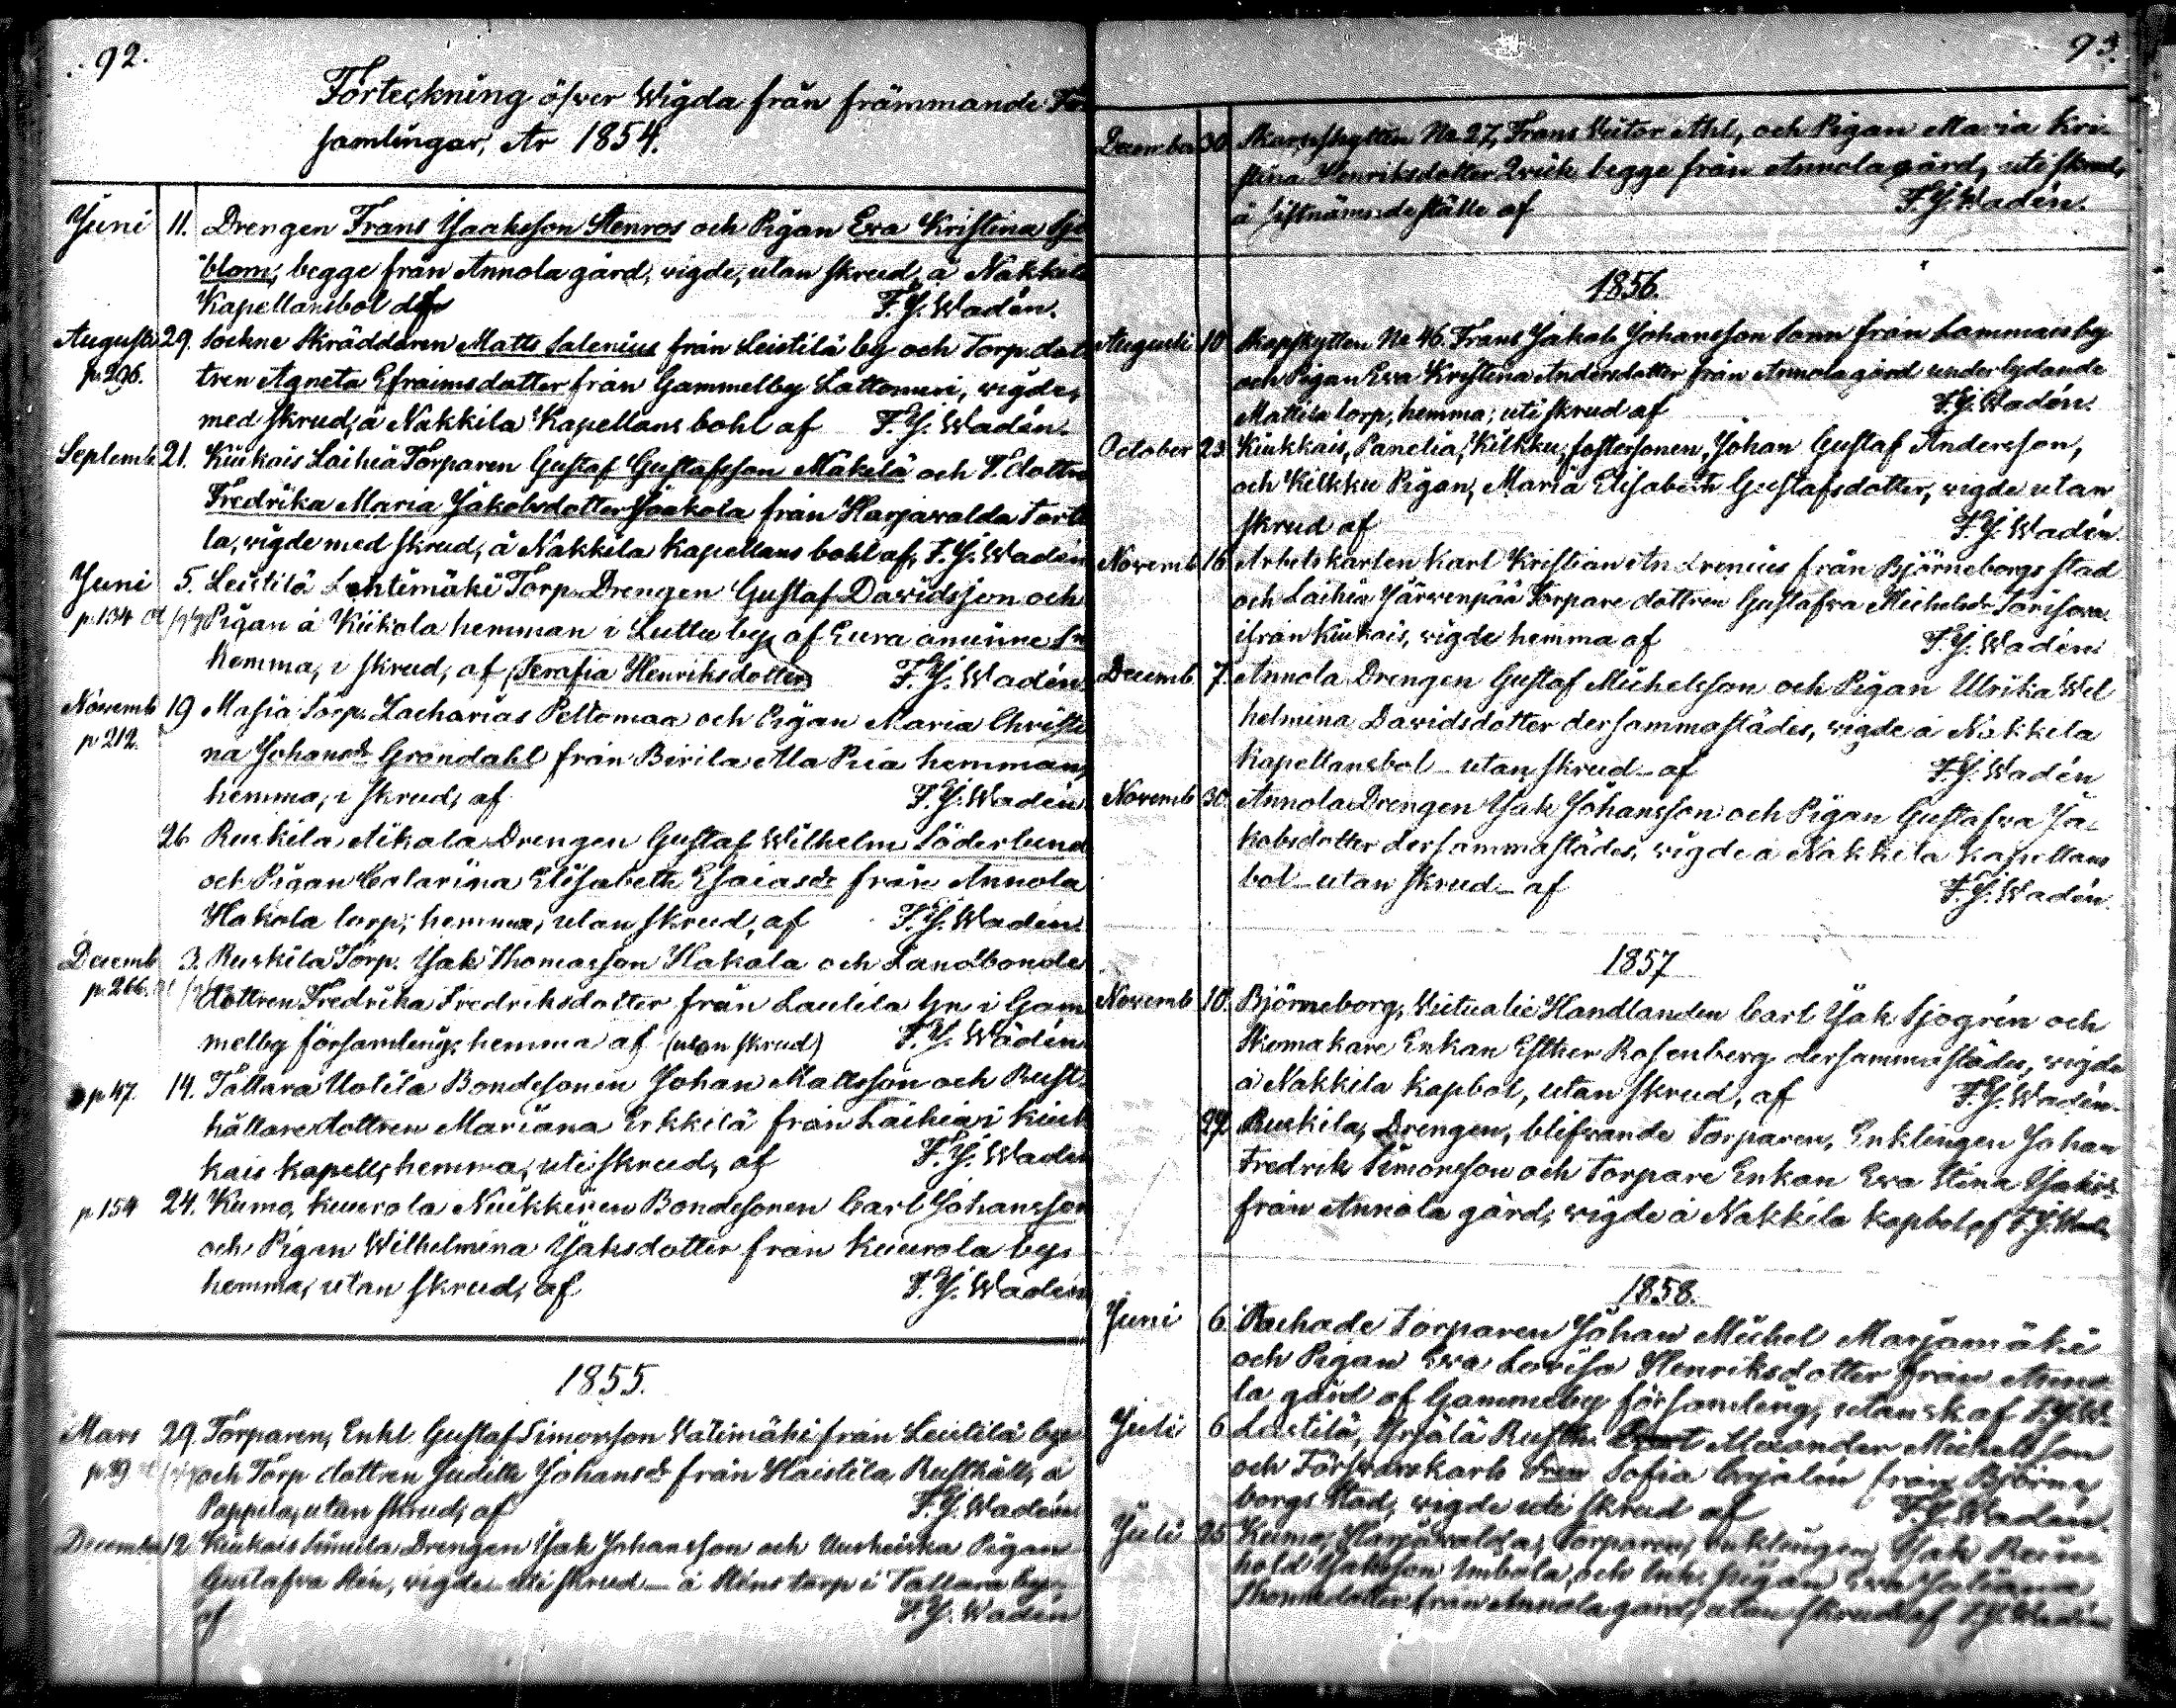 92.
Förteckning öfver Wigda från främmande För
samlingar, År 1854.
Juni 11. Drengen Frans Isaaksson Stenros och Pigan Eva Kristina Sjö
blom, begge från Annola gård, vigde, utan skrud, å Nakkila
Kapellansbol af F. J. Wadén.
Augusti 29. Sockne Skräddaren Matts Salenius från Leistilä by och Torp. dot
p. 296. tren Agneta Efraimsdotter från Gammelby Lattomeri, vigde,
med skrud, å Nakkila Kapellans bohl af F. J. Wadén.
Septemb. 21. Kiukais Laihia Torparen Gustaf Gustafsson Mäkelä och T. dottre
Fredrika Maria Jakobsdotter Jaakola från Harjavalda Torti
la, vigde med skrud, å Nakkila Kapellans bohl af F. J. Wadén
Juni 5. Leistilä Lehtimäki Torp. Drengen Gustaf Davidsson och
p. 134 Pigan å Kiikola hemman i Luttu by af Eura
hemma, i skrud, af (Serafia Henriksdotter) F. J. Wadén.
Novemb 19 Masia Torp. Zacharias Peltomaa och Pigan Maria Christi
p 212. na Johansdr Gröndahl från Birila Ala Piia hemman,
hemma, i skrud, af F. J. Wadén
26 Ruskila Nikola Drengen Gustaf Wilhelm Söderlund
och Pigan Catarina Elisabeth Esaiasdr från Annola
Hakola torp, hemma, utan skrud, af F. J. Wadén.
Decemb 3. Ruskila Torp. Isak Thomasson Hakala och Landbonde
p. 266. dottren Fredrika Fredriksdotter från Laulila Gr. i Gam
melby församling, hemma af (utan skrud) F. J. Wadén
p 47. 14. Tattara Uotila Bondesonen Johan Mattsson och Rust
hållare dottren Mariana Erkkilä från Laihia i Kiuk
kais kapell, hemma, uti skrud, af F. J. Wadén
p 154 24. Kumo, Kuurola Niukkinen Bondesonen Carl Johansson
och Pigan Wilhelmina Isaksdotter från Kuurola by
hemma, utan skrud, af F. J. Wadén
1855.
Mars 29. Torparen, Enkl. Gustaf Simonsson Välimäki från Leistilä by
och Torp dottren Judith Johansdr från Haistila Rusthåll, å
Pappila, utan skrud, af F. J. Wadén
December 12. Kiukais Drengen Isak Johansson och Pigan
Gustafva Rén, vigde uti skrud å Réns torp i Tattara by
af F. J. Wadén
93.
December 30. Skarpskytten No 27, Frans Victor Ahl, och Pigan Maria Kri-
stina Henriksdotter Qvick begge från Annola gård, uti skrud,
å sistnämnde ställe af F. J. Wadén.
1856.
Augusti 10 Skarpskytten No 46 Frans Jakob Johansson Sonn från Lammais by
och Pigan Eva Kristina Andersdotter från Annola gård underlydande
Mattila torp, hemma, uti skrud af F. J. Wadén.
October 23. Kiukkais, Panelia, Kilkku, fostersonen, Johan Gustaf Andersson,
och Kilkku Pigan, Maria Elisabeth Gustafsdotter, vigde utan
skrud af F. J. Wadén.
Novemb 16. Arbetskarlen Karl Kristian Andrenius från Björneborgs stad
och Laihia Järvenpää Torpare dottren Gustafva Michelsdr
ifrån Kiukais, vigde hemma af F. J. Wadén.
Decemb. 7. Annola Drengen Gustaf Michelsson och Pigan Ulrika Wil
helmina Davidsdotter dersammastädes, vigde å Nakkila
Kapellansbol utan skrud af F. J. Wadén
Novemb 30. Annola Drengen Isak Johansson och Pigan Gustafva Ja-
kobsdotter dersammastädes, vigde å Nakkila Kapellans
bol utan skrud af F. J. Wadén.
1857
Novemb 10. Björneborg, Victualie Handlanden Carl Isak Sjogrén och
Skomakare Enkan Esther Rosenberg dersammastädes, vigde
å Nakkila kapbol, utan skrud, af F. J. Wadén.
27. Ruskila, Drengen, blifvande Torparen, Enklingen Johan
Fredrik Simonsson och Torpare Enkan Eva Stina Isaksdr
från Annola gård, vigde å Nakkila kapbol, af F. J. Wadén
1858.
Juni 6. Torparen Johan Michel Marjamäki
och Pigan Eva Lovisa Henriksdotter från Anno
la gård af Gammelby församling, utan sk af F. J. W.
Juli 6 Leistilä, Yrjälä Rusth. Alexander Michelsson
och Försvarskarls dren Sofia från Björne
borgs Stad, vigde uti skrud af F. J. Wadén.
Juli 25 Kumo, Harjavalda, Torparen, enklingen, Isak Rein
hold Isaksson Imbola, och Pigan Eva Juliana
Thomasdotter från Annola gård, utan skrud af F. J. Wadén